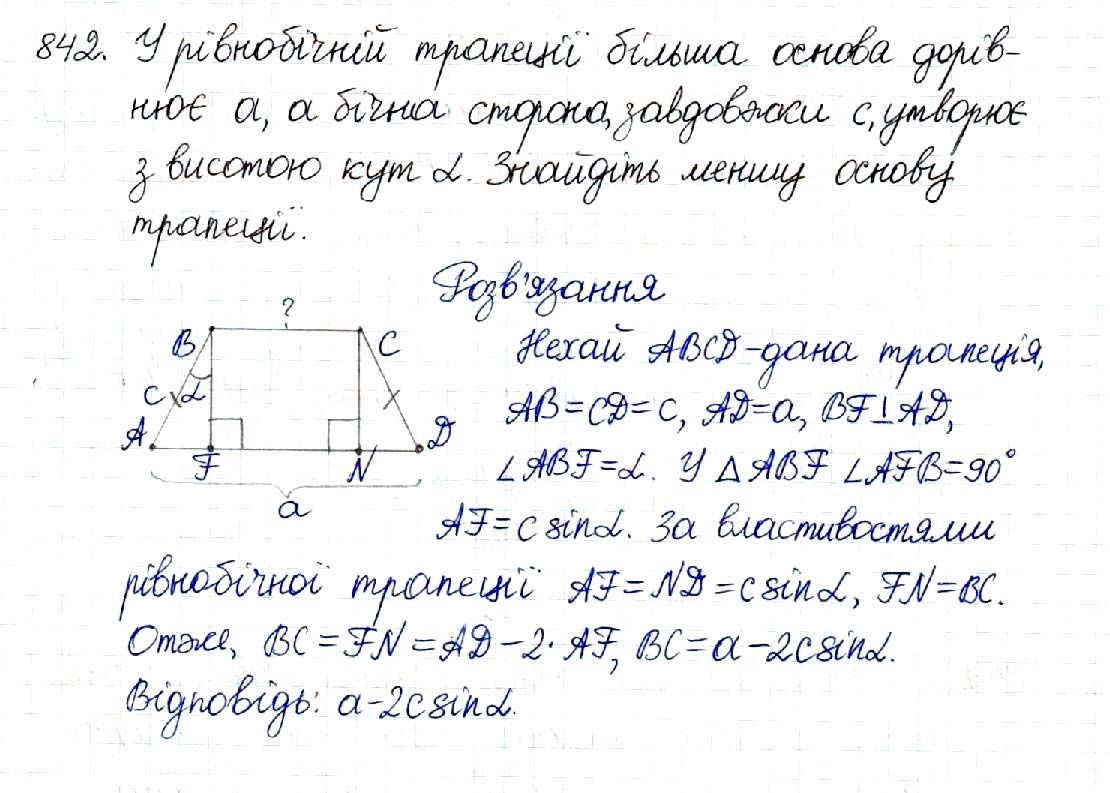 842. У рівнобічній трапеції більша основа дорів-
нює a, а бічна сторона, завдовжки c, утворює
з висотою кут α. Знайдіть меншу основу
трапеції.
Розв'язання
?
B
C
c
α
A
F
N
D
a
Нехай ABCD-дана трапеція,
AB=CD=c, AD=a, BF⊥AD,
∠ABF=α. У △ABF ∠AFB=90°
AF=c sinα. За властивостями
рівнобічної трапеції AF=ND=c sinα, FN=BC.
Отже, BC=FN=AD-2·AF, BC=a-2c sinα.
Відповідь: a-2c sinα.